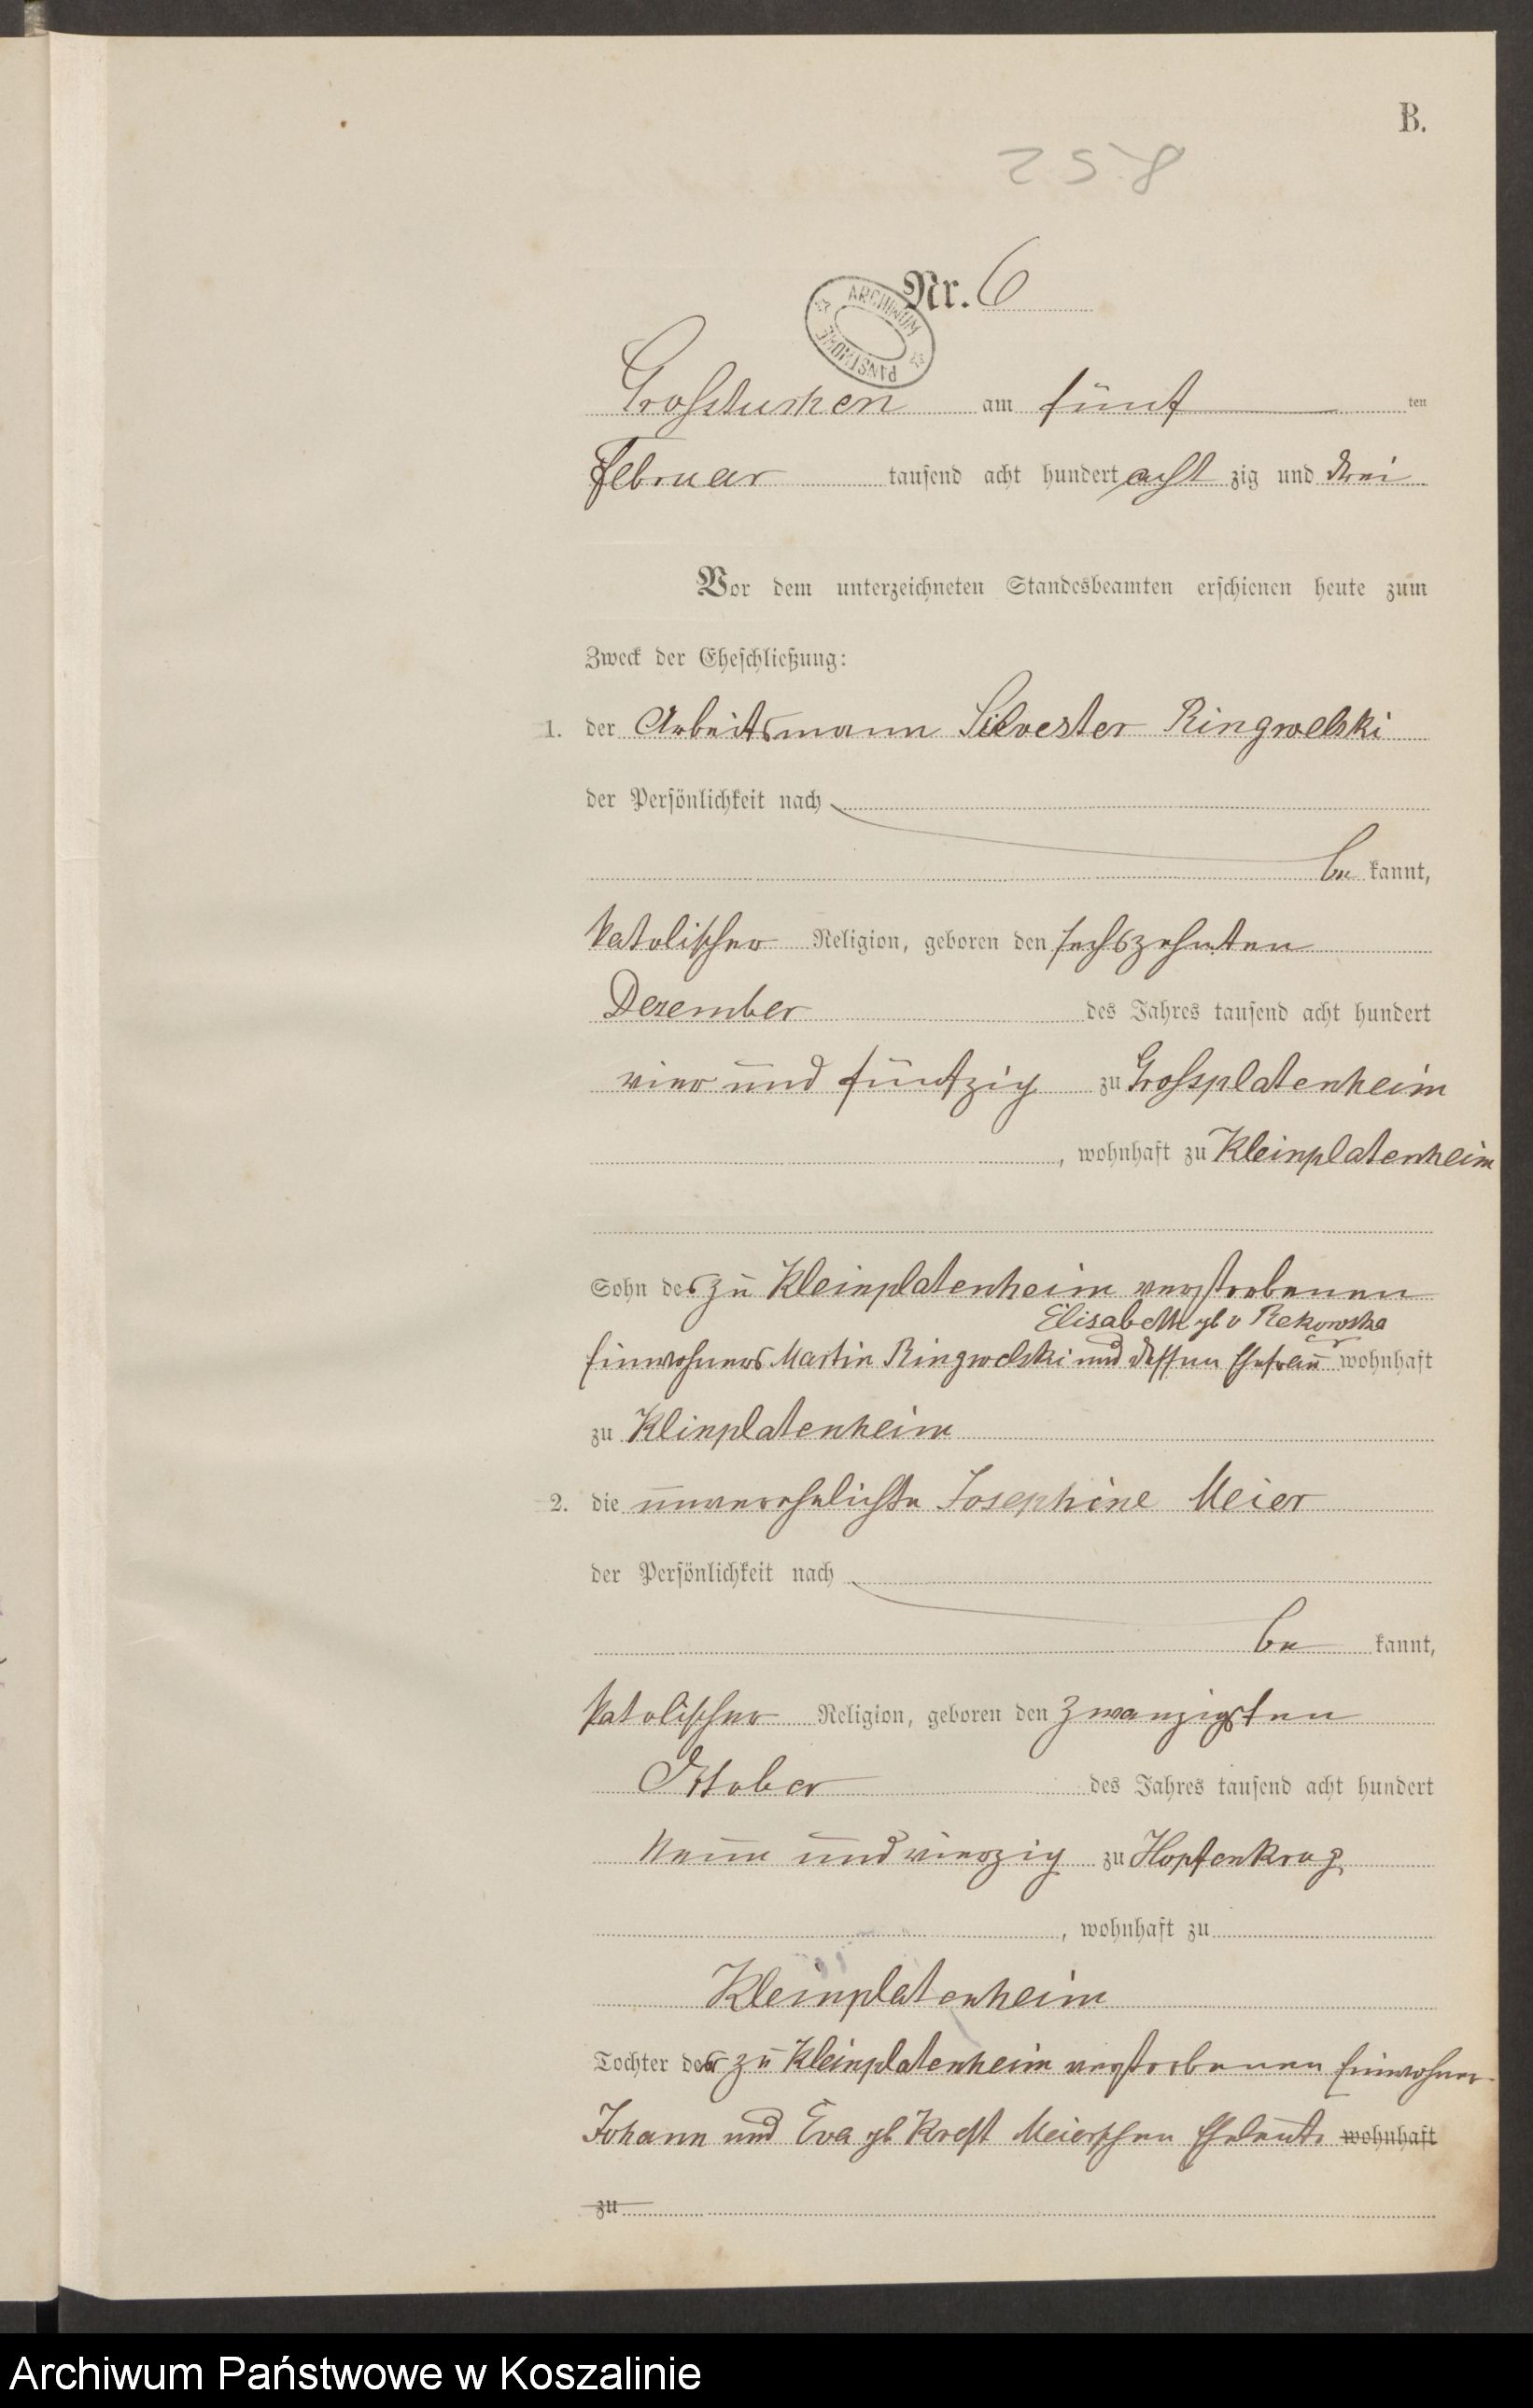 B.
258
Nr. 6
ARCHIWUM PAŃSTWOWE
Grosstuchen am fünf ten
Februar tausend acht hundert acht zig und drei
Vor dem unterzeichneten Standesbeamten erschienen heute zum
Zweck der Eheschließung:
1. der Arbeitsmann Silvester Ringwelski
der Persönlichkeit nach
be kannt,
katolischer Religion, geboren den sechszehnten
Dezember des Jahres tausend acht hundert
vier und fünfzig zu Grossplatenheim
, wohnhaft zu Kleinplatenheim
Sohn des zu Kleinplatenheim verstorbenen
Elisabeth gb v Rekowska
Einwohners Martin Ringwelski und dessen Ehefrau wohnhaft
zu Klinplatenheim
2. die unverehelichte Josephine Meier
der Persönlichkeit nach
be kannt,
katolischer Religion, geboren den zwanzigsten
October des Jahres tausend acht hundert
neun und vierzig zu Hopfenkrug
, wohnhaft zu
Kleinplatenheim
Tochter der zu Kleinplatenheim verstorbenen Einwohner
Johann und Eva gb Meierschen Eheleute wohnhaft
zu
Archiwum Państwowe w Koszalinie